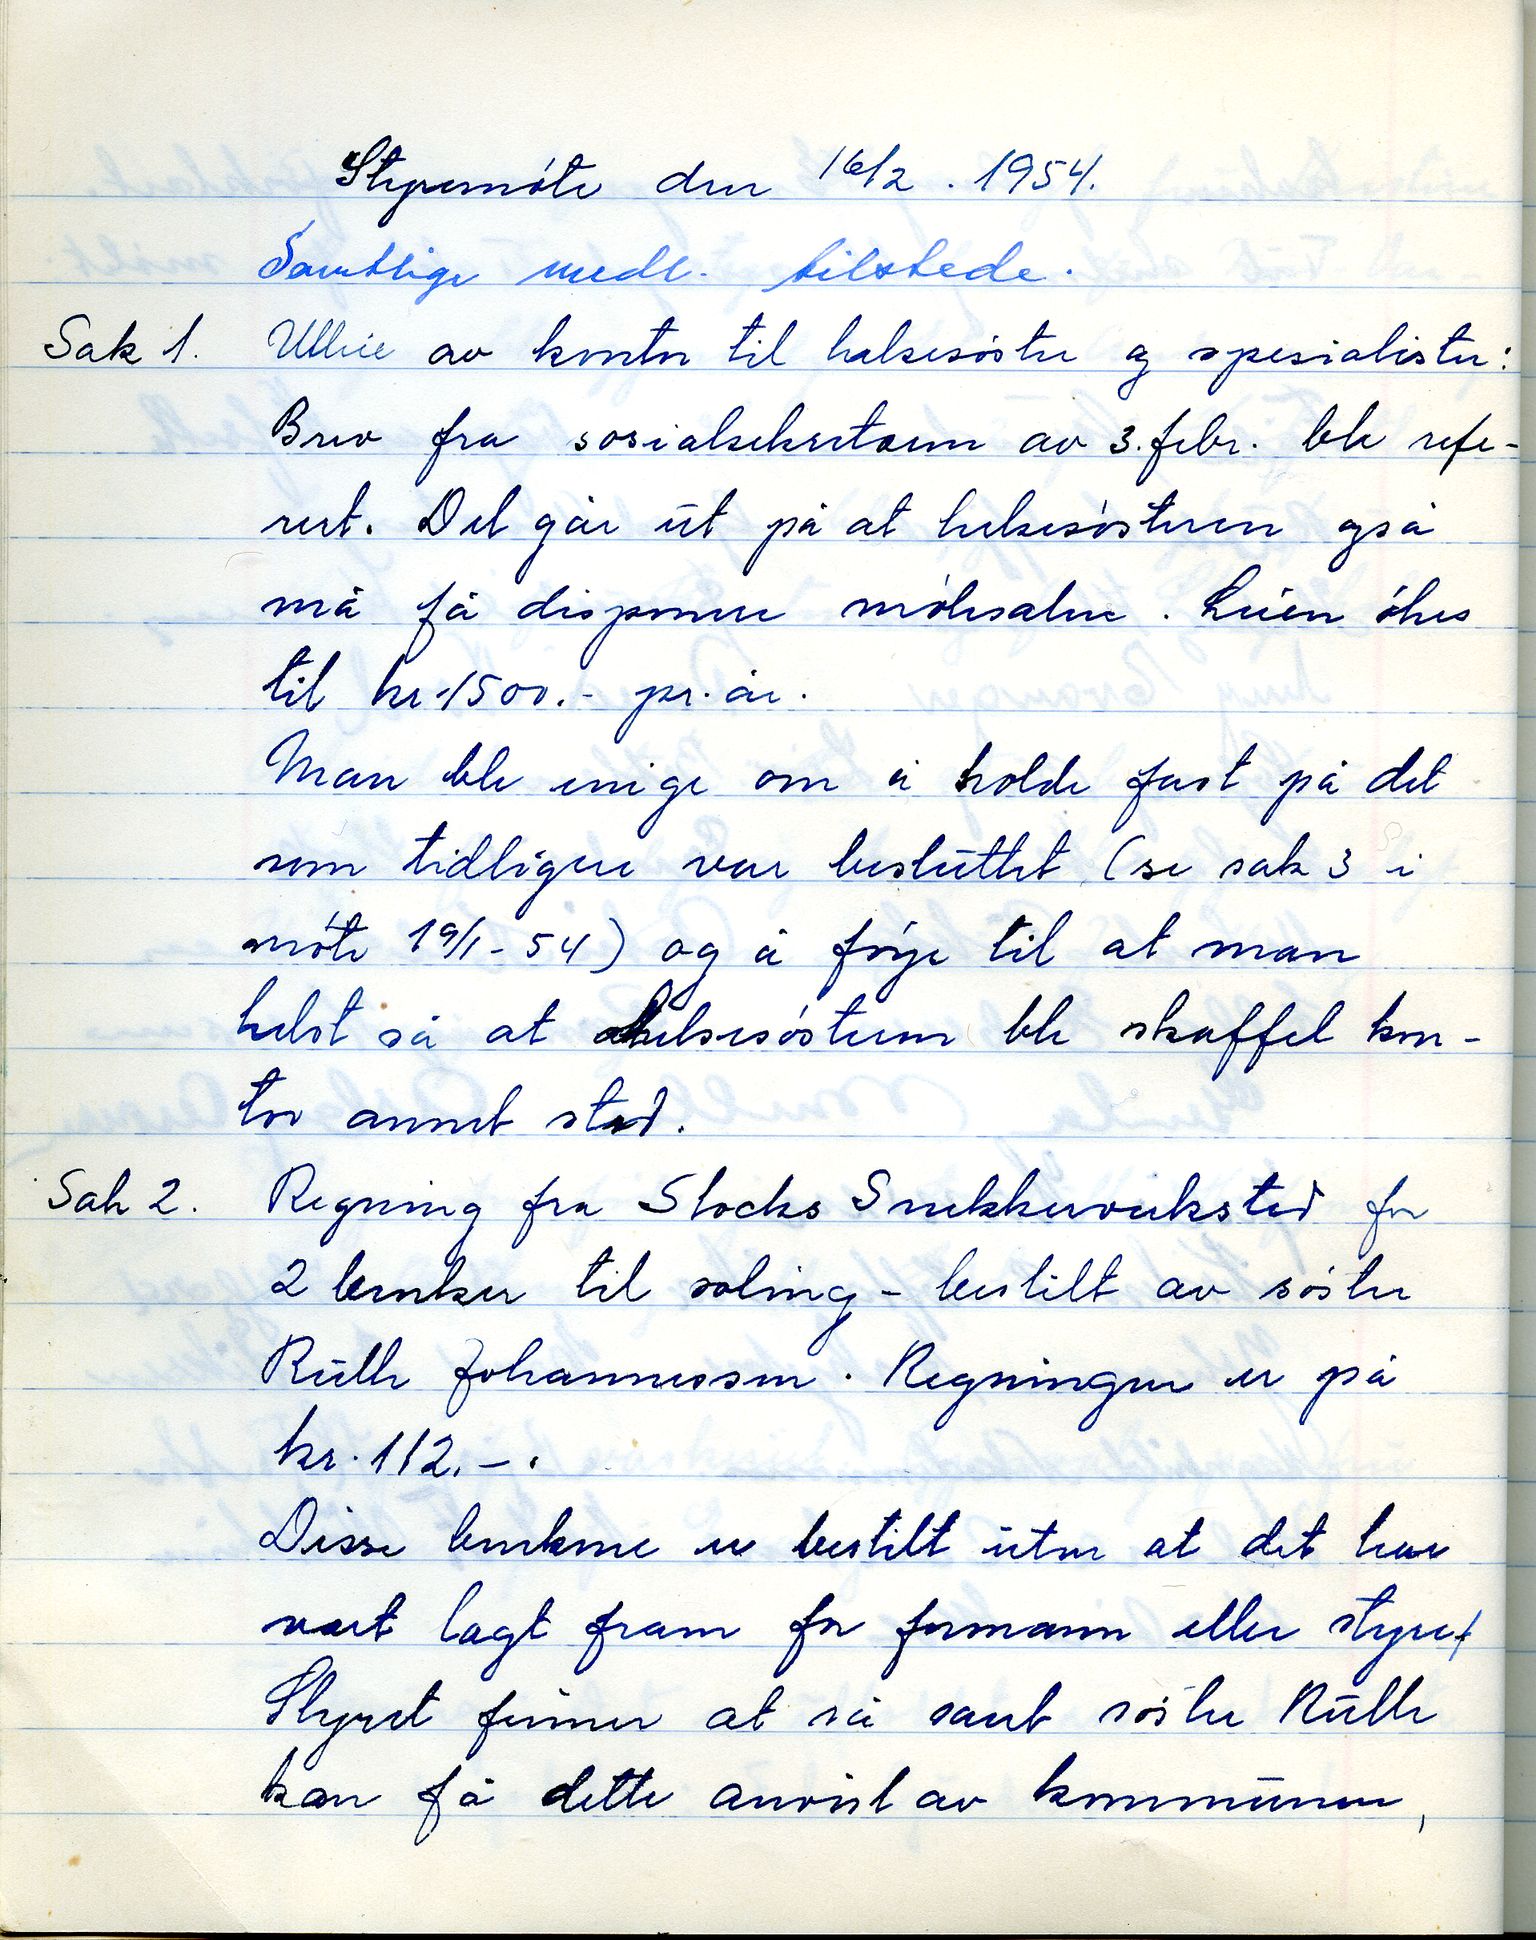 Styremöte den 16/2. 1954.
Samtlige medl. tilstede.
Sak 1. Utleie av kontor til helsesöster og spesialister:
Brev fra sosialsekretæren av 3. febr. ble refe-
rert. Det går ut på at helsesösteren også
må få disponere mötesalene. Leien ökes
til kr. 1500.- pr. år.
Man ble enige om å holde fast på det
som tidligere var besluttet (se sak 3 i
möte 19/1-54) og å föye til at man
helst så at helsesösteren ble skaffet kon-
tor annet sted.
Sak 2. Regning fra Stocks Snekkerverksted for
2 benker til soling - bestilt av söster
Ruth Johannessen. Regningen er på
kr. 112.-.
Disse benkene er bestilt uten at det har
vært lagt fram for formann eller styret
Styret finner at så sant söster Ruth
kan få dette anvist av kommunen,